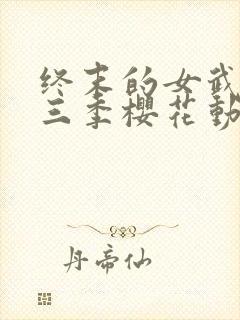 终末的女武
三季樱花动
丹帝仙